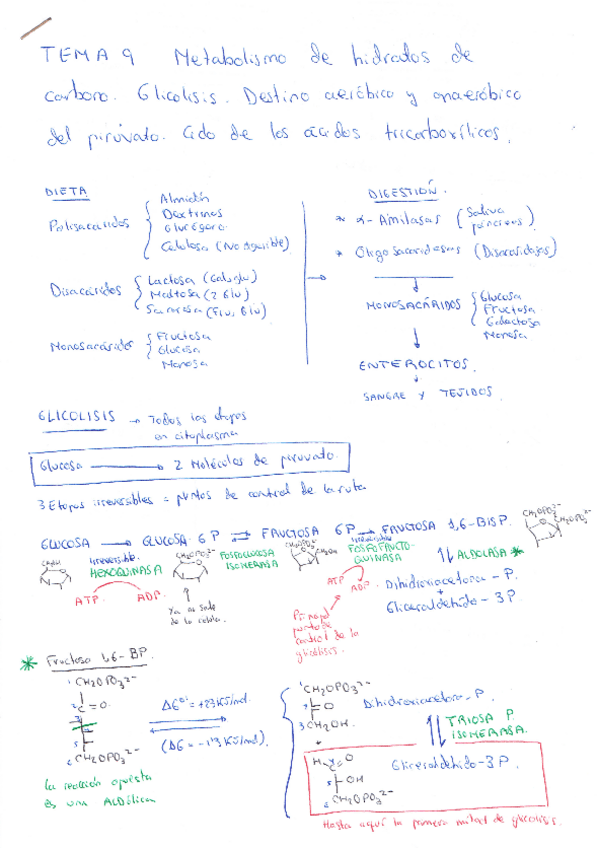 TEMA 9 Metabolismo de hidratos de
carbono. Glicolisis. Destino aeróbico y anaeróbico
del piruvato. Ciclo de los ácidos tricarboxílicos.
DIETA
Polisacáridos
Almidón
Dextrinas
Glucógeno
Celulosa (No digerible)
Disacáridos
Lactosa (Gal, glu)
Maltosa (2 Glu)
Sacarosa (Fru, Glu)
Monosacáridos
Fructosa
Glucosa
Manosa
DIGESTIÓN.
* α-Amilasas (Saliva
páncreas)
* Oligosacaridasas (Disacaridasas)
MONOSACÁRIDOS
Glucosa
Fructosa
Galactosa
Manosa
ENTEROCITOS.
SANGRE Y TEJIDOS.
GLICOLISIS → Todas las etapas
en citoplasma
Glucosa → 2 Moléculas de piruvato.
3 Etapas irreversibles = puntos de control de la ruta
GLUCOSA → GLUCOSA 6P ⇌ FRUCTOSA 6P → FRUCTOSA 1,6-BISP.
irreversible.
HEXOQUINASA
ATP ADP.
CH₂OH
CH₂OPO₃²⁻
Ya no sale
de la célula.
FOSFOGLUCOSA
ISOMERASA
irreversible
FOSFOFRUCTO-
QUINASA
ATP ADP.
Principal
punto de
control de la
glicolisis.
CH₂OPO₃²⁻
⇅ ALDOLASA *
Dihidroxiacetona-P.
+
Gliceraldehido-3P
* Fructosa 1,6-BP.
¹CH₂OPO₃²⁻
²C=O
⁶CH₂OPO₃²⁻
La reacción opuesta
es una Aldólica
ΔG°' = +23 KJ/mol.
(ΔG = -1'3 KJ/mol).
¹CH₂OPO₃²⁻
²=O
³CH₂OH.
+
Dihidroxiacetona-P.
⇅ TRIOSA P.
ISOMERASA.
H⁴C=O
⁵-OH
⁶CH₂OPO₃²⁻
Gliceraldehido-3P.
Hasta aquí la primera mitad de glicolisis.